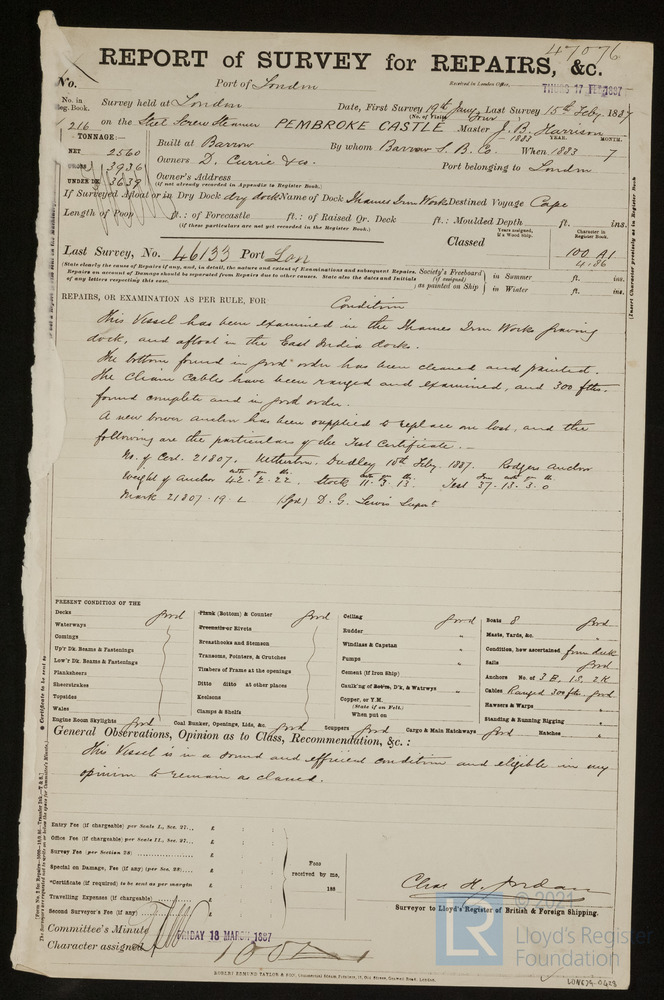 47076
REPORT of SURVEY for REPAIRS, &c.
No. Port of London Received in London Office, THURS 17 FEB 1887
No. in Reg. Book. Survey held at London Date, First Survey 19th Jany Last Survey 15th Feby 1887
(No. of Visits Four
1216 on the Steel Screw Steamer PEMBROKE CASTLE Master J. B. Harrison
TONNAGE:— 1883 YEAR. MONTH.
NET 2560 Built at Barrow By whom Barrow S. B. Co. When 1883 7
GROSS 3936 Owners D. Currie & Co. Port belonging to London
UNDER DK 3639 Owner's Address
(if not already recorded in Appendix to Register Book.)
If Surveyed Afloat or in Dry Dock dry dock Name of Dock Thames Iron Works Destined Voyage Cape
Length of Poop ft.: of Forecastle ft.: of Raised Qr. Deck ft.: Moulded Depth ft. ins.
(If these particulars are not yet recorded in the Register Book.)
Years assigned, if a Wood Ship. Character in Register Book.
Classed 100 A1
4.86
Last Survey, No. 46133 Port Lon
(State clearly the causes of Repairs if any, and, in detail, the nature and extent of Examinations and subsequent Repairs.
Repairs on account of Damage should be separated from Repairs due to other causes. State also the dates and Initials
of any letters respecting this case.
Society's Freeboard (if assigned) as painted on Ship in Summer ft. ins.
in Winter ft. ins.
REPAIRS, OR EXAMINATION AS PER RULE, FOR Condition
This Vessel has been examined in the Thames Iron Works graving
dock, and afloat in the East India docks.
The bottom found in good order has been cleaned and painted.
The Chain Cables have been ranged and examined, and 300 fths.
found complete and in good order.
A new bower anchor has been supplied to replace one lost, and the
following are the particulars of the Test Certificate.—
No. of Cert. 21807. Netherton, Dudley 10th Feby. 1887. Rodgers Anchor
Weight of Anchor 42. 2. 22. Stock 11. 3. 13. Test 37. 13. 3. 0
Mark 21807.19.L (Sgd) D. G. Lewis Supt.
PRESENT CONDITION OF THE
Decks good
Waterways
Comings
Up'r Dk. Beams & Fastenings
Low'r Dk. Beams & Fastenings
Planksheers
Sheerstrakes
Topsides
Wales
Engine Room Skylights good
Plank (Bottom) & Counter good
Treenails or Rivets
Breasthooks and Stemson
Transoms, Pointers, & Crutches
Timbers of Frame at the openings
Ditto ditto at other places
Keelsons
Clamps & Shelfs
Coal Bunker, Openings, Lids, &c. good
Ceiling good
Rudder "
Windlass & Capstan "
Pumps "
Cement (if Iron Ship) "
Caulking of Bot'm, D'k, & Waterwys "
Copper, or Y.M.
(State if on Felt.)
When put on
Scuppers good Cargo & Main Hatchways good
Boats 8 good
Masts, Yards, &c. "
Condition, how ascertained from deck
Sails good
Anchors No. of 3 B, 1 S, 2 K
Cables Ranged 300 fths. good
Hawsers & Warps
Standing & Running Rigging "
Hatches "
General Observations, Opinion as to Class, Recommendation, &c.:
This Vessel is in a sound and efficient condition and eligible in my
opinion to remain as classed.
Entry Fee (if chargeable) per Scale I., Sec. 27... £
Office Fee (if chargeable) per Scale II., Sec. 27... £
Survey Fee (per Section 28) £
Special on Damage, Fee (if any) (per Sec. 28).... £
*Certificate (if required) to be sent as per margin £
Travelling Expenses (if chargeable) £
Second Surveyor's Fee (if any) £
Fees received by me, 188
Chas. H. Jordan
Surveyor to Lloyd's Register of British & Foreign Shipping.
Committee's Minute FRIDAY 18 MARCH 1887
Character assigned 100 A1
ROBERT EDMUND TAYLOR & SON
© 2021
LR
Lloyd's Register
Foundation
LON674-0428